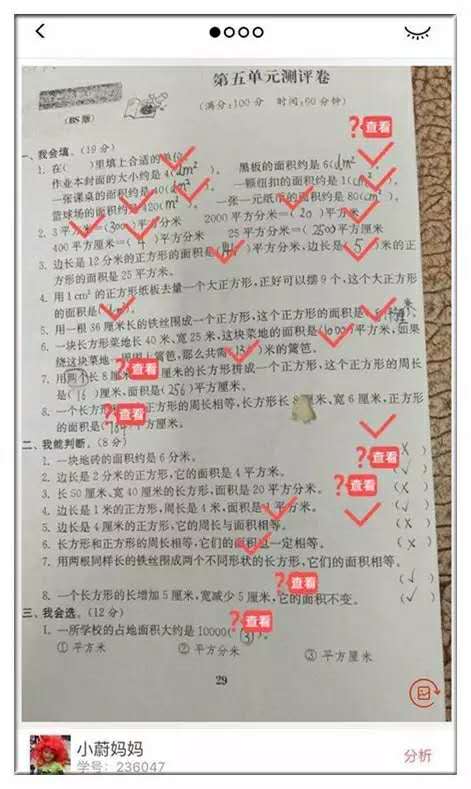 第五单元测评卷
(BS版)
(满分:100分 时间:60分钟)
查看
一、我会填。(19分)
1. 在( )里填上合适的单位。
作业本封面的大小约是4(dm²)。 黑板的面积约是6(dm²
一张课桌的面积约是40(dm²)。 一颗纽扣的面积约是1(cm²)。
篮球场的面积约是420(m²)。 张一元纸币的面积约是80(cm²)。
2. 3平方米=(300)平方分米 2000平方分米=(20)平方米
400平方厘米=(4)平方分米 25平方分米=(2500)平方厘米
3. 边长是12分米的正方形的面积是(144)平方分米,边长是(5)米的正
方形的面积是25平方米。
4. 用1cm²的正方形纸板去量一个大正方形,正好可以摆9个,这个大正方形
的面积是
5. 用一根36厘米长的铁丝围成一个正方形,这个正方形的面积是
6. 一块长方形菜地长40米,宽25米,这块菜地的面积是(1000)平方米,如果
绕这块菜地一周围上篱笆,那么共需 )米的篱笆。
7. 用两个长8厘米 查看 厘米的长方形拼成一个正方形,这个正方形的周长
是(16)厘米,面积是(256)平方厘米。
8. 一个长方形 查看 正方形的周长相等,长方形长 厘米,宽6厘米,正方形
的面积是 平方厘米。
二、我能判断。(8分)
1. 一块地砖的面积约是6分米。 (X)
查看
2. 边长是2分米的正方形,它的面积是4平方米。 (√)
3. 长50厘米、宽40厘米的长方形,面积是20平方分米。 查看 (X)
4. 边长是1米的正方形,周长是4米,面积是1平方米。 (√)
5. 边长是4厘米的正方形,它的周长与面积相等。 (X)
6. 长方形和正方形的周长相等,它们的面积也一定相等。 (X)
7. 用两根同样长的铁丝围成两个不同形状的长方形,它们的面积相等。
查看 (√)
8. 一个长方形的长增加5厘米,宽减少5厘米,它的面积不变。 (√)
三、我会选。(12分)
查看
1. 一所学校的占地面积大约是10000(③)。
① 平方米 ② 平方分米 ③ 平方厘米
29
小蔚妈妈
学号: 236047
分析